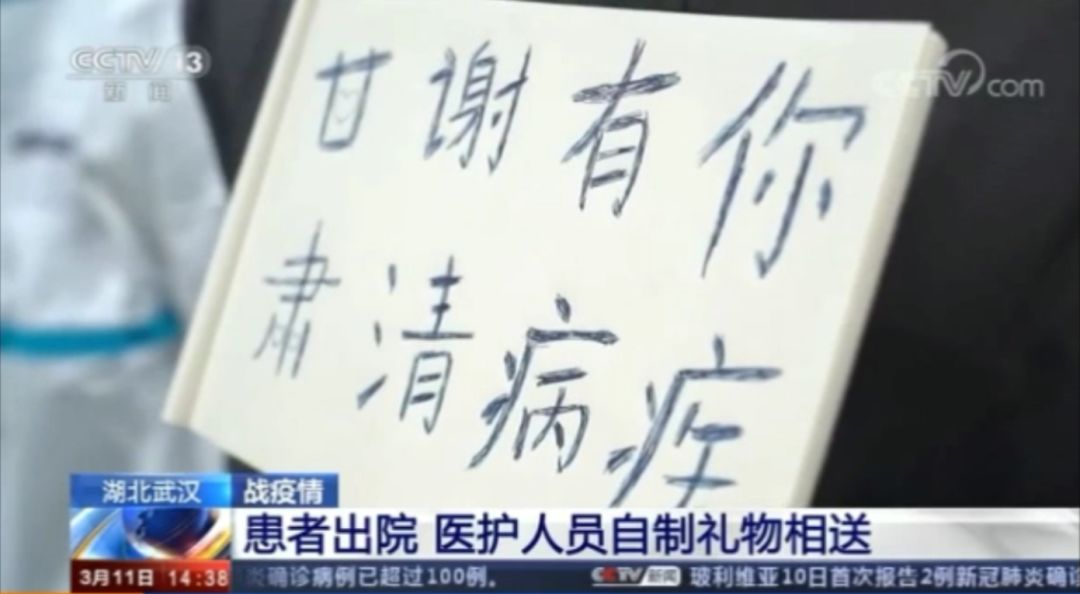 CCTV 13
新闻
CCTV.com
甘谢有你
肃清病疾
湖北武汉 战疫情
患者出院 医护人员自制礼物相送
3月11日 14:38 炎确诊病例已超过100例。 CCTV新闻 玻利维亚10日首次报告2例新冠肺炎确诊